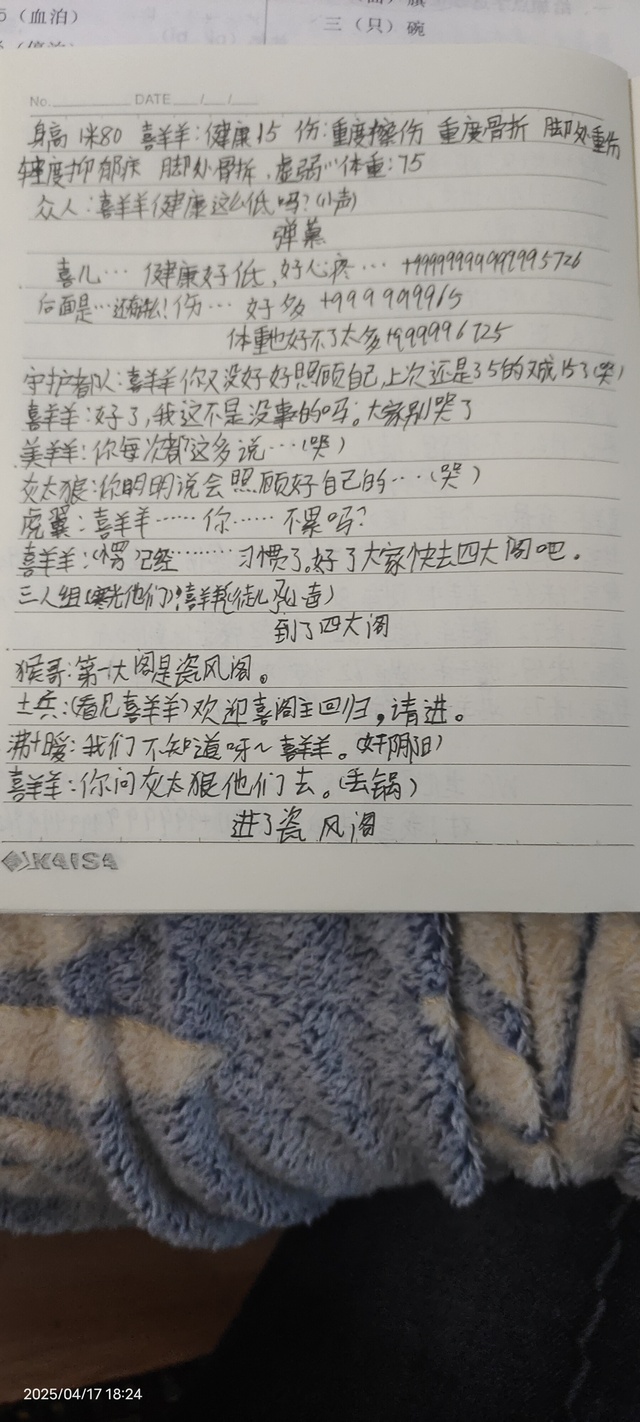 （血泊）
三（只）碗
No. DATE / /
身高1米80 喜羊羊:健康15 伤:重度擦伤 重度骨折 脚处重伤
轻度抑郁床 脚处骨折,虚弱…体重:75
众人:喜羊羊健康这么低吗?(小声)
弹幕
喜儿… 健康好低,好心疼…
后面是…还有伤!伤… 好多 +999999965
体重也好不了太多+999996725
守护者队:喜羊羊你又没好好照顾自己,上次还是35的对成15了(哭)
喜羊羊:好了,我这不是没事的吗。大家别哭了
美羊羊:你每次都这多说…(哭)
灰太狼:你明明说会照顾好自己的…(哭)
虎翼:喜羊羊……你……不累吗?
喜羊羊:(愣)已经………习惯了。好了大家快去四大阁吧。
三人组
到了四大阁
猴哥:第一大阁是瓷风阁。
士兵:(看见喜羊羊)欢迎喜阁主回归,请进。
沸+暖:我们不知道呀~喜羊羊。(好阴阳)
喜羊羊:你问灰太狼他们去。(丢锅)
进了瓷风阁
KAISA
2025/04/17 18:24